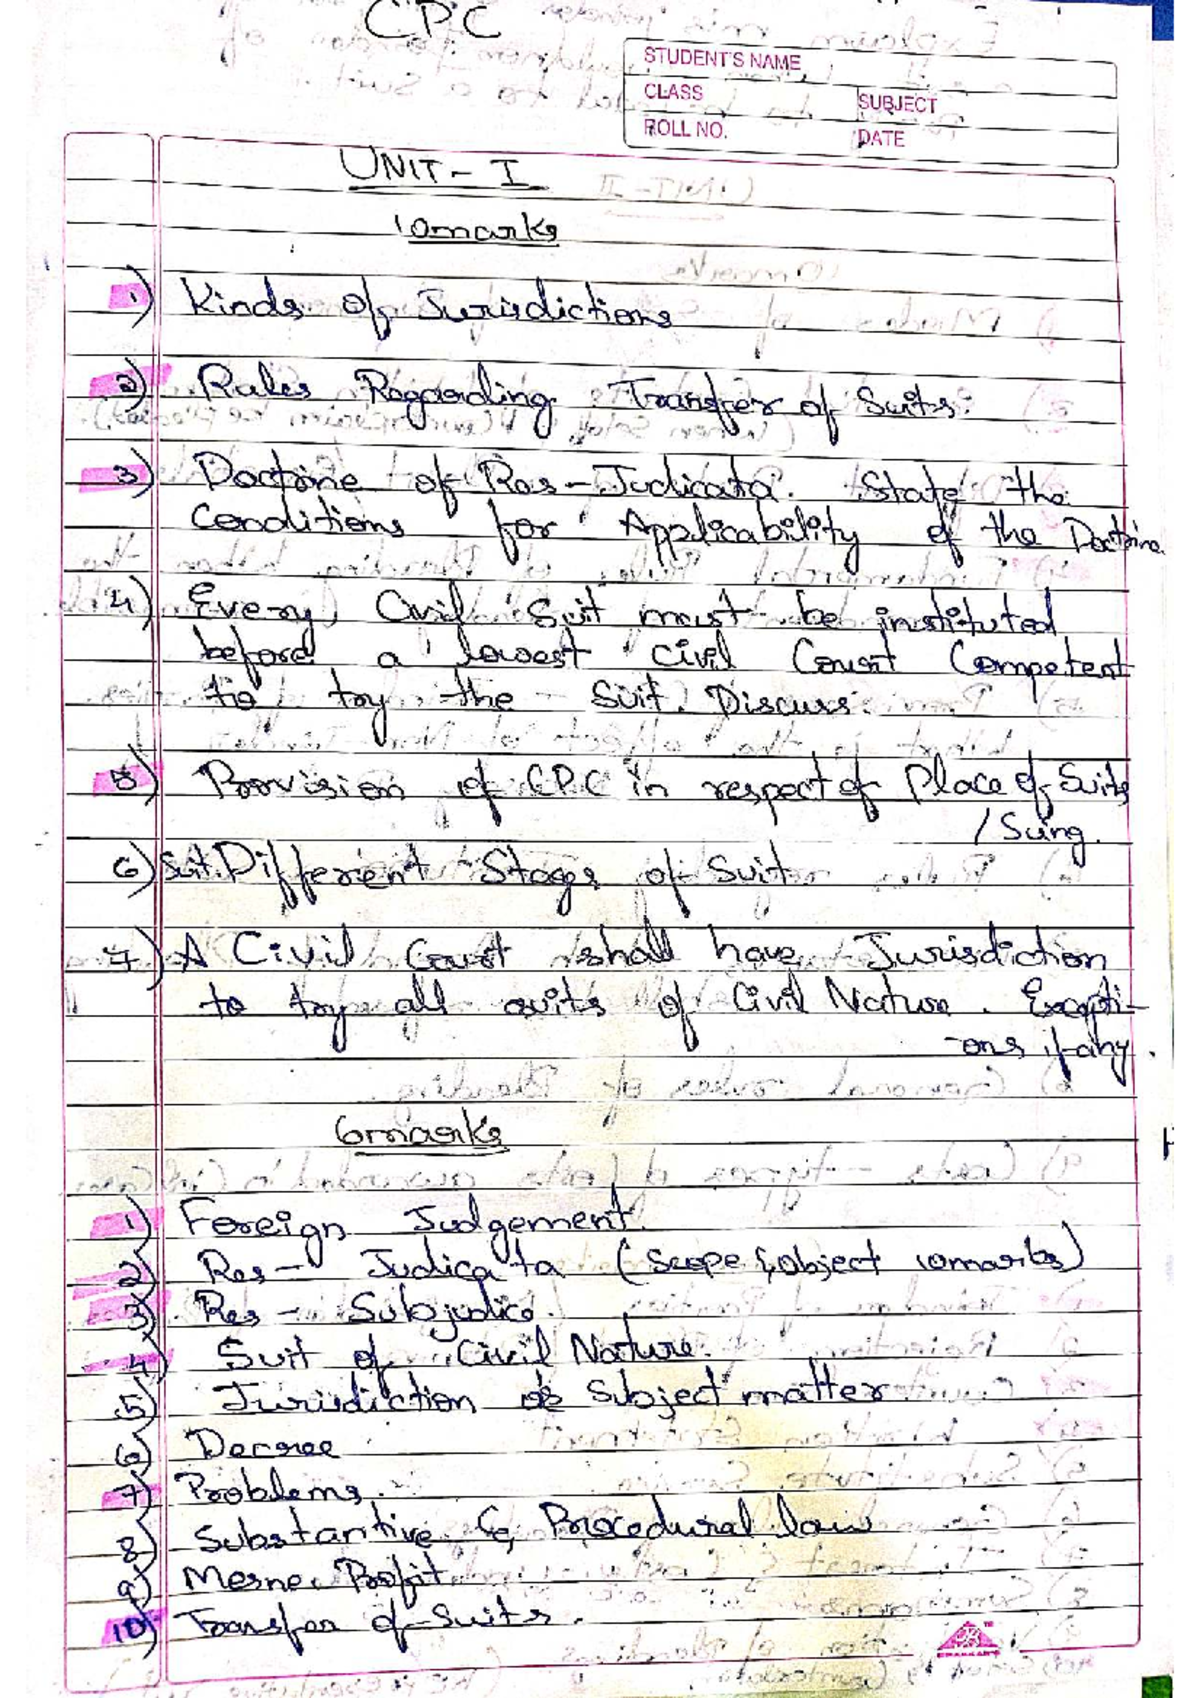 CPC
STUDENT'S NAME
CLASS
SUBJECT
ROLL NO.
DATE
UNIT - I
10marks
1) Kinds of Jurisdictions
2) Rules Regarding Transfer of Suits.
3) Doctrine of Res-Judicata. State the
Conditions for Applicability of the Doctrine
4) Every Civil Suit must be instituted
before a lowest Civil Court Competent
to try the Suit. Discuss.
5) Provision of CPC in respect of Place of Suits
/ Suing.
6) Suit. Different Stages of Suit.
7) A Civil Court shall have Jurisdiction
to try all suits of Civil Nature. Excepti-
ons if any.
6marks
1) Foreign Judgement.
2) Res - Judicata (Scope & object 10marks)
3) Res - Subjudice.
4) Suit of Civil Nature.
5) Jurisdiction Subject matter
6) Decree
7) Problems.
8) Substantive & Procedural law
9) Mesne Profit
10) Transfer of Suits.